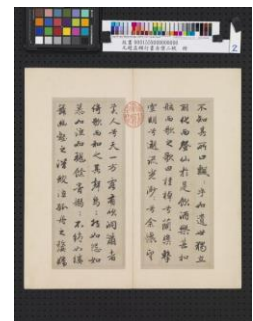 不知其所止飄飄乎如遺世獨立
羽化而登仙於是飲酒樂甚扣
舷而歌之歌曰桂棹兮蘭槳擊
空明兮泝流光渺渺兮余懷望
美人兮天一方客有吹洞簫者
倚歌而和之其聲嗚嗚然如怨如
慕如泣如訴餘音嫋嫋不絕如縷
舞幽壑之潛蛟泣孤舟之嫠婦
2